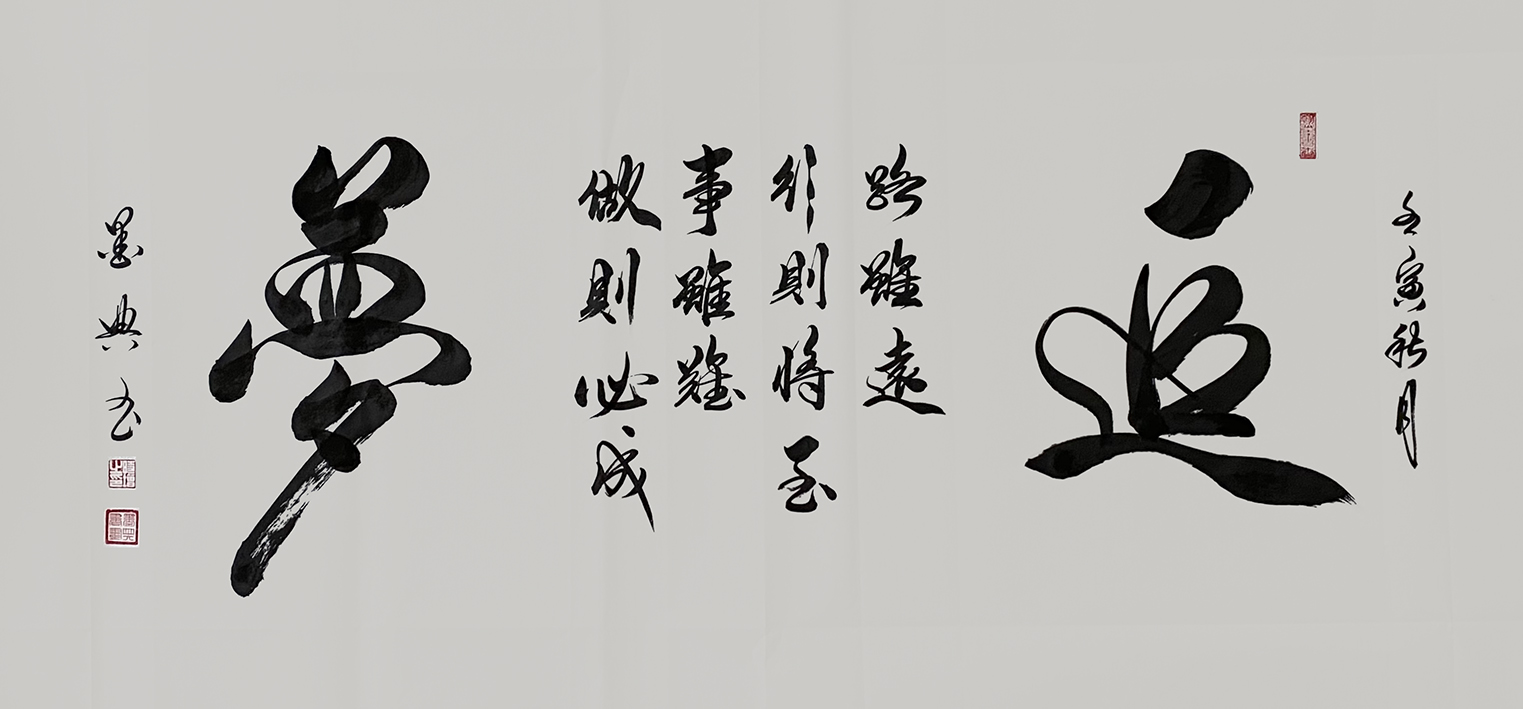 壬寅秋月
追
路雖遠
行則將至
事雖難
做則必成
夢
墨典書